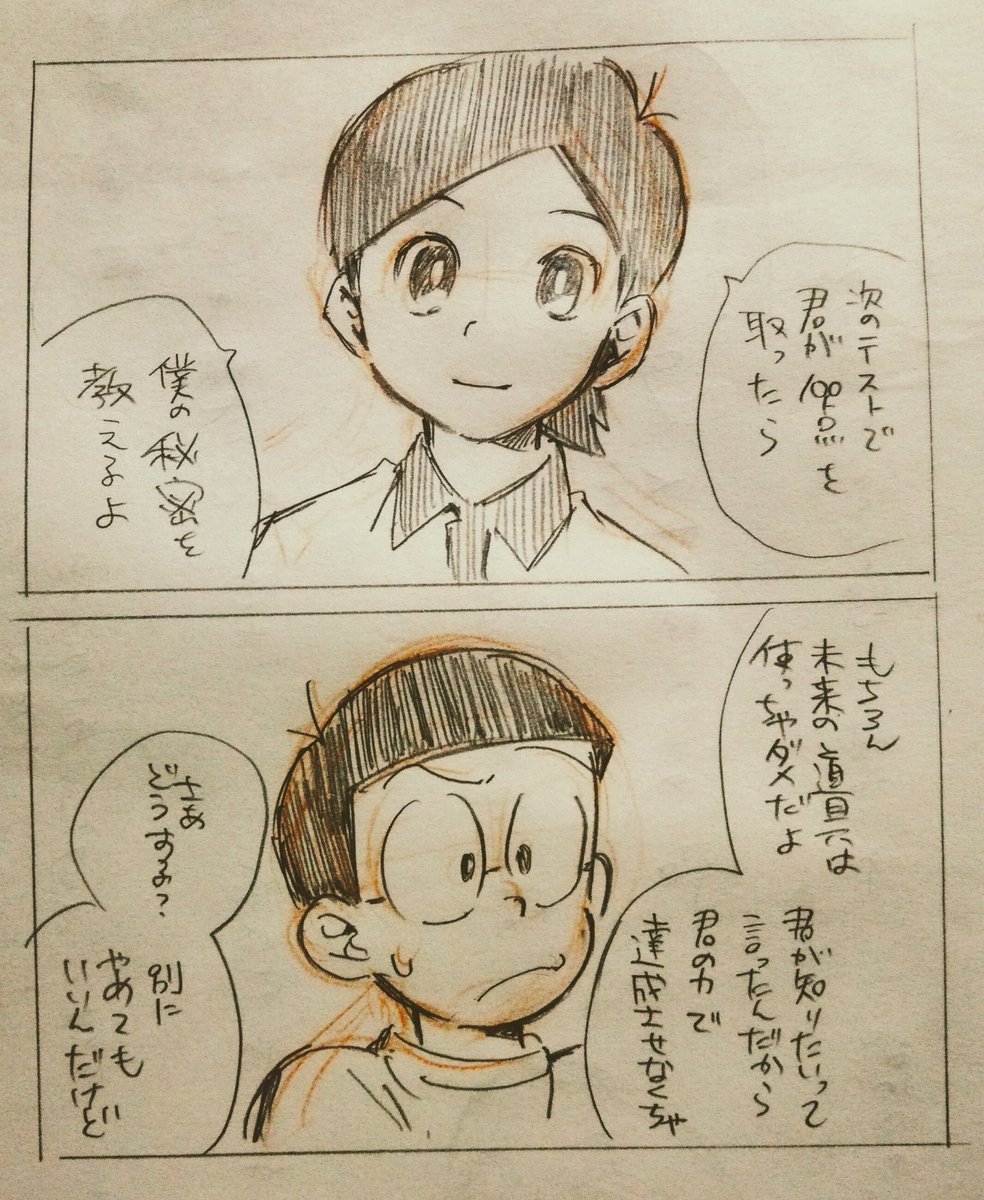 次のテストで
君が100点を
取ったら
僕の秘密を
教えるよ
もちろん
未来の道具は
使っちゃダメだよ
君が知りたいって
言ったんだから
君の力で
達成させなくちゃ
さあ
どうする?
別に
やめても
いいんだけど